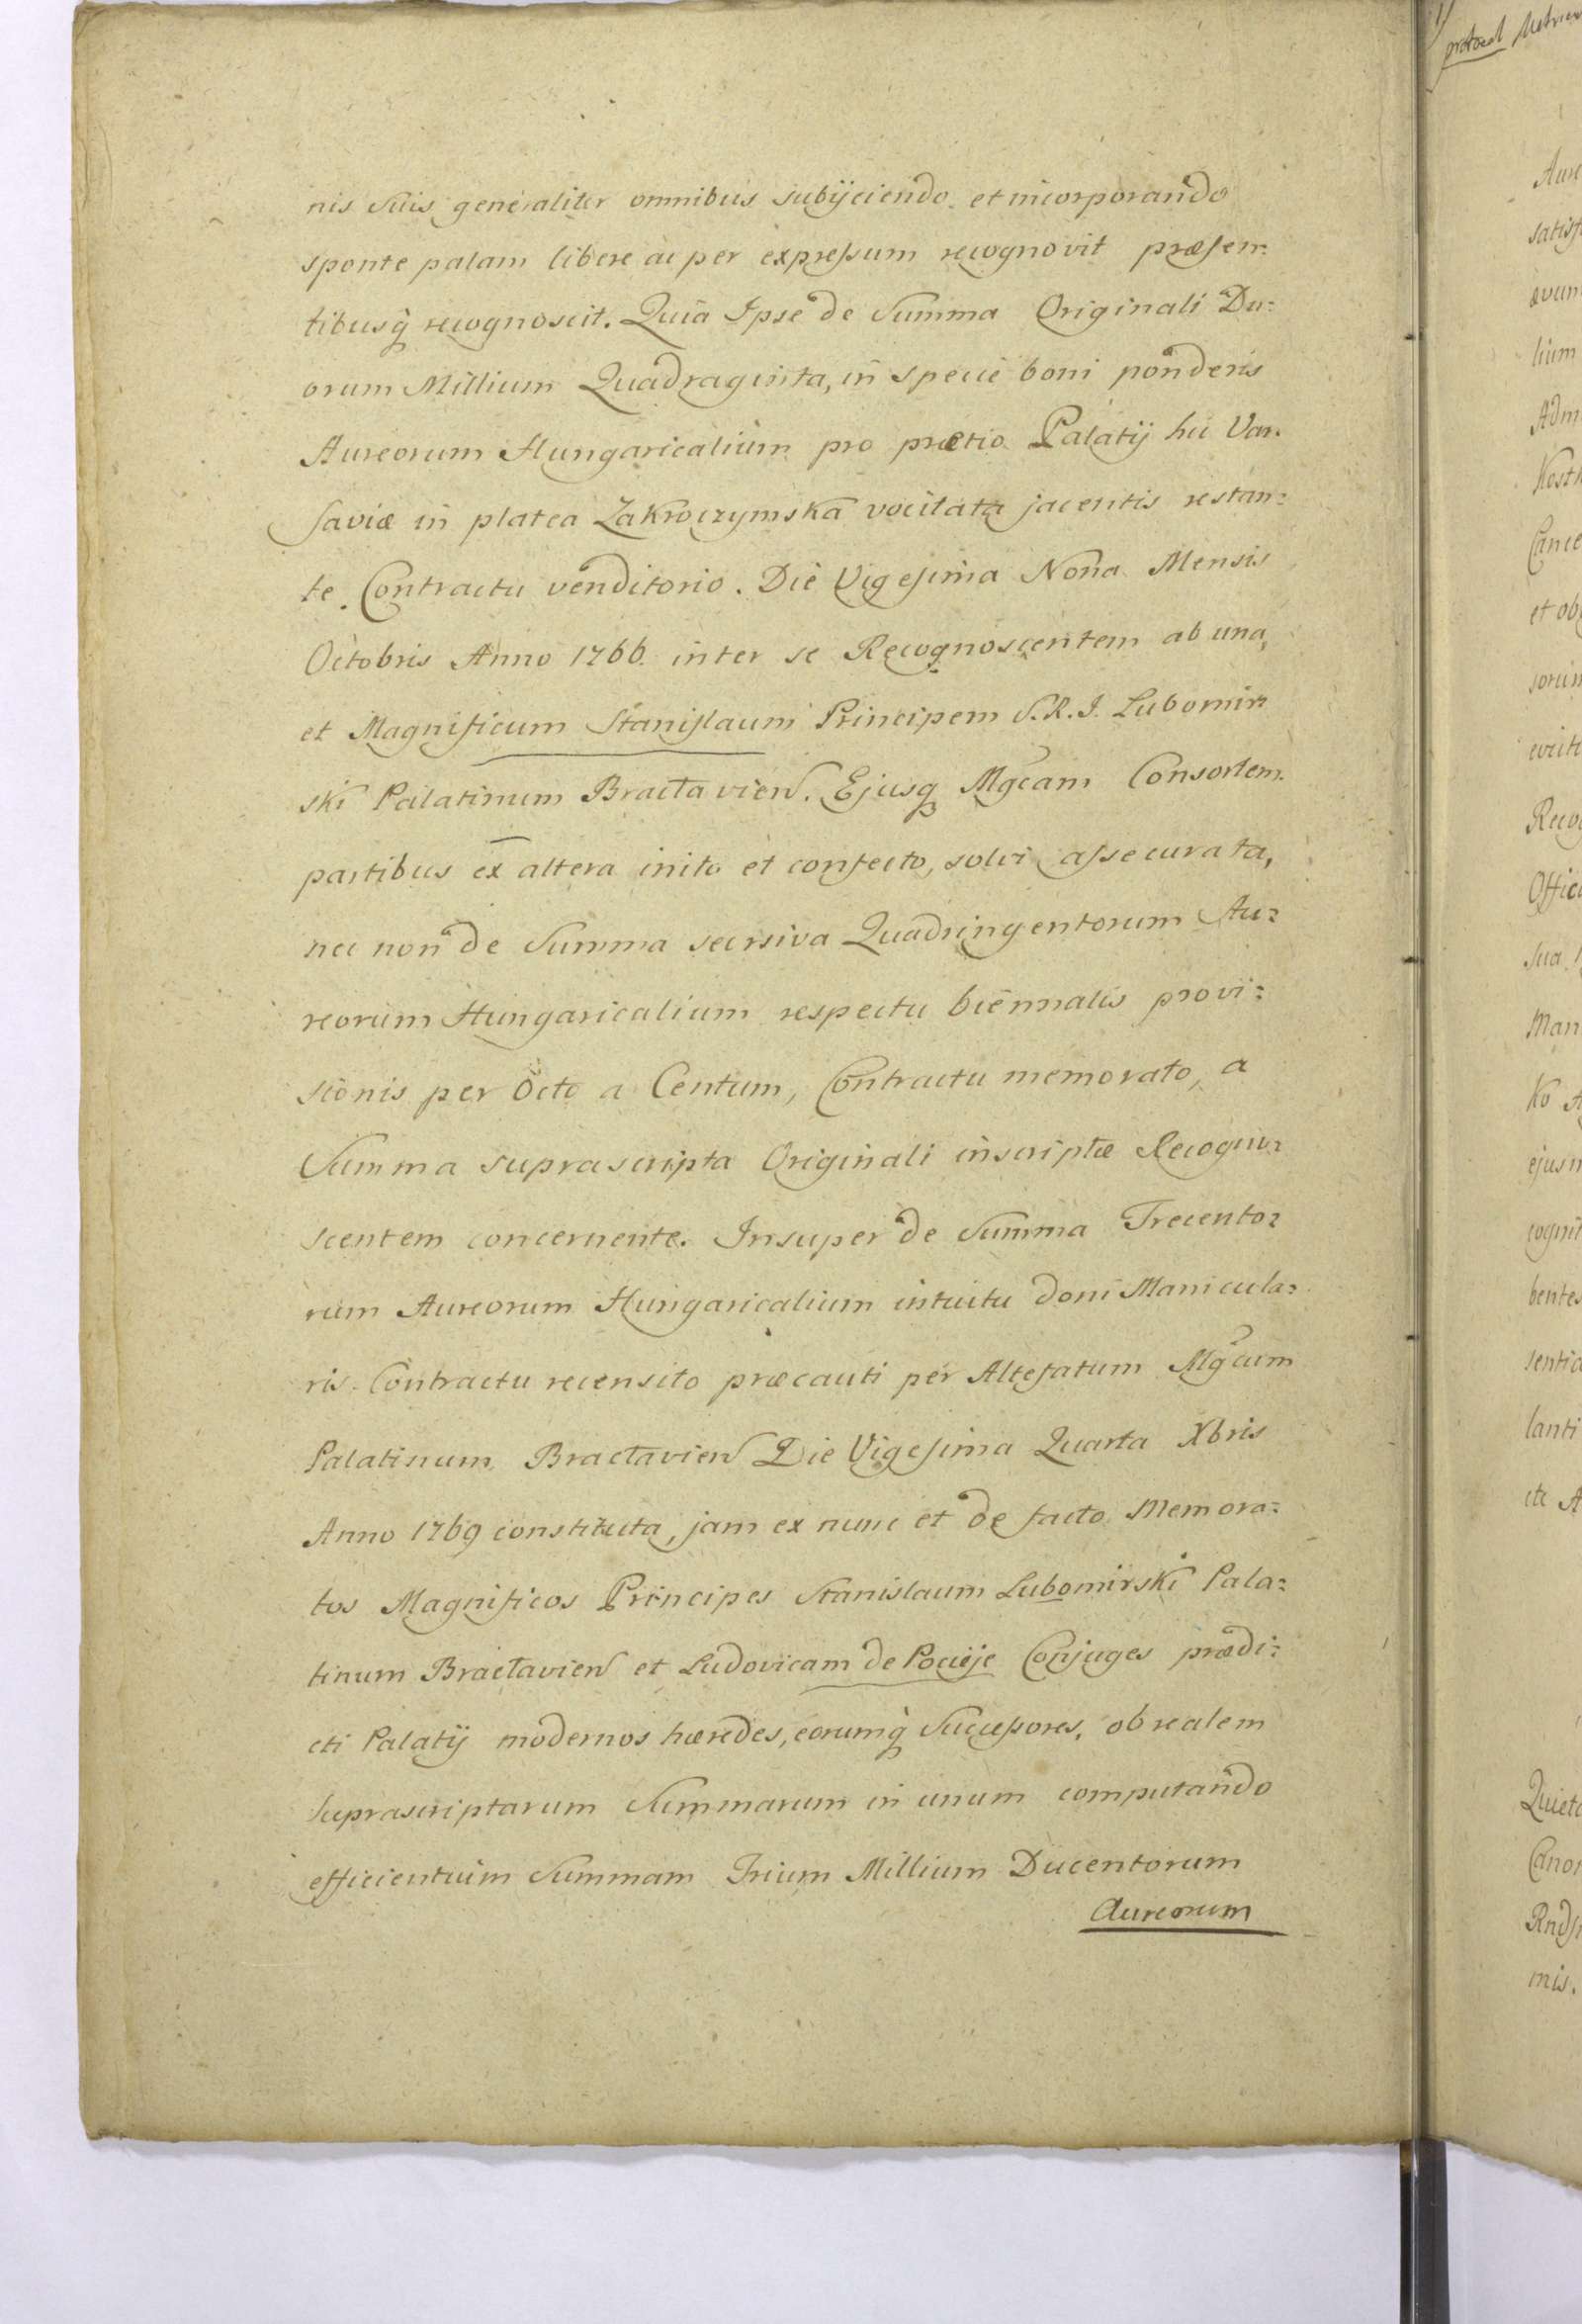 nis suis generaliter omnibus subijciendo et incorporando
sponte palam libere ac per expressum recognovit præsen:
tibusq̀ recognoscit. Quia Ipse de Summa Originali Du:
orum Millium Quadraginta, in specie boni ponderis
Aureorum Hungaricalium pro prætio Palatij hic Var:
saviæ in platea Zakroczymska vocitata jacentis restan:
te. Contractu venditorio. Die Vigesima Nona Mensis
Octobris Anno 1766. inter se Recognoscentem ab una,
et Magnificum Stanislaum Principem S.R.I. Lubomir:
ski Palatinum Bractavien. Ejusq Mgcam Consortem
partibus ex altera inito et confecto, solvi assecurata,
nec non de Summa secrsiva Quadringentorum Au:
reorum Hungaricalium respectu biennalis provi:
sionis per Octo a Centum, Contractu memorato, a
Summa suprascripta Originali inscriptæ Recogno:
scentem concernente. Insuper de Summa Trecento:
rum Aureorum Hungaricalium intuitu doni Manicula:
ris Contractu recensito præcauti per Altefatum Mgcum
Palatinum Bractavien Die Vigesima Quarta Xbris
Anno 1769 constituta, jam ex nunc et de facto Memora:
tos Magnificos Principes Stanislaum Lubomirski Pala:
tinum Bractavien et Ludovicam de Pocieje Conjuges prædi:
cti Palatij modernos hæredes, eorumq̀ Successores, ob realem
suprascriptarum Summarum in unum computando
efficientium Summam Trium Millium Ducentorum
Aureorum
protocol
Aure
satisf
ævum
lium
Adm
Kosth
Cance
et ob
sorum
Reco
Offici
sua
Man
ejusm
cognit
bentes
sentia
lanti
etc A
Quieta
Canon
mis.